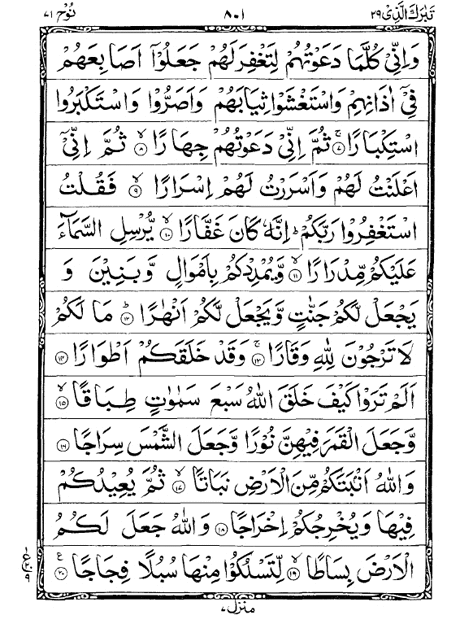 تَبٰرَكَ الَّذِیْ ٢٩
٨٠١
نُوْح ٧١
وَاِنِّیْ كُلَّمَا دَعَوْتُهُمْ لِتَغْفِرَ لَهُمْ جَعَلُوْۤا اَصَابِعَهُمْ
فِیْۤ اٰذَانِهِمْ وَاسْتَغْشَوْا ثِیَابَهُمْ وَاَصَرُّوْا وَاسْتَكْبَرُوا
اسْتِكْبَارًا ۚ٧ ثُمَّ اِنِّیْ دَعَوْتُهُمْ جِهَارًا ۙ٨ ثُمَّ اِنِّیْۤ
اَعْلَنْتُ لَهُمْ وَاَسْرَرْتُ لَهُمْ اِسْرَارًا ۙ٩ فَقُلْتُ
اسْتَغْفِرُوْا رَبَّكُمْ ؕ اِنَّهٗ كَانَ غَفَّارًا ۙ١٠ یُّرْسِلِ السَّمَآءَ
عَلَیْكُمْ مِّدْرَارًا ۙ١١ وَّیُمْدِدْكُمْ بِاَمْوَالٍ وَّبَنِیْنَ وَ
یَجْعَلْ لَّكُمْ جَنّٰتٍ وَّیَجْعَلْ لَّكُمْ اَنْهٰرًا ؕ١٢ مَا لَكُمْ
لَا تَرْجُوْنَ لِلّٰهِ وَقَارًا ۚ١٣ وَقَدْ خَلَقَكُمْ اَطْوَارًا ١٤
اَلَمْ تَرَوْا كَیْفَ خَلَقَ اللّٰهُ سَبْعَ سَمٰوٰتٍ طِبَاقًا ۙ١٥
وَّجَعَلَ الْقَمَرَ فِیْهِنَّ نُوْرًا وَّجَعَلَ الشَّمْسَ سِرَاجًا ١٦
وَاللّٰهُ اَنْۢبَتَكُمْ مِّنَ الْاَرْضِ نَبَاتًا ۙ١٧ ثُمَّ یُعِیْدُكُمْ
فِیْهَا وَیُخْرِجُكُمْ اِخْرَاجًا ١٨ وَاللّٰهُ جَعَلَ لَكُمُ
الْاَرْضَ بِسَاطًا ۙ١٩ لِّتَسْلُكُوْا مِنْهَا سُبُلًا فِجَاجًا ۧ٢٠
منزل ٧